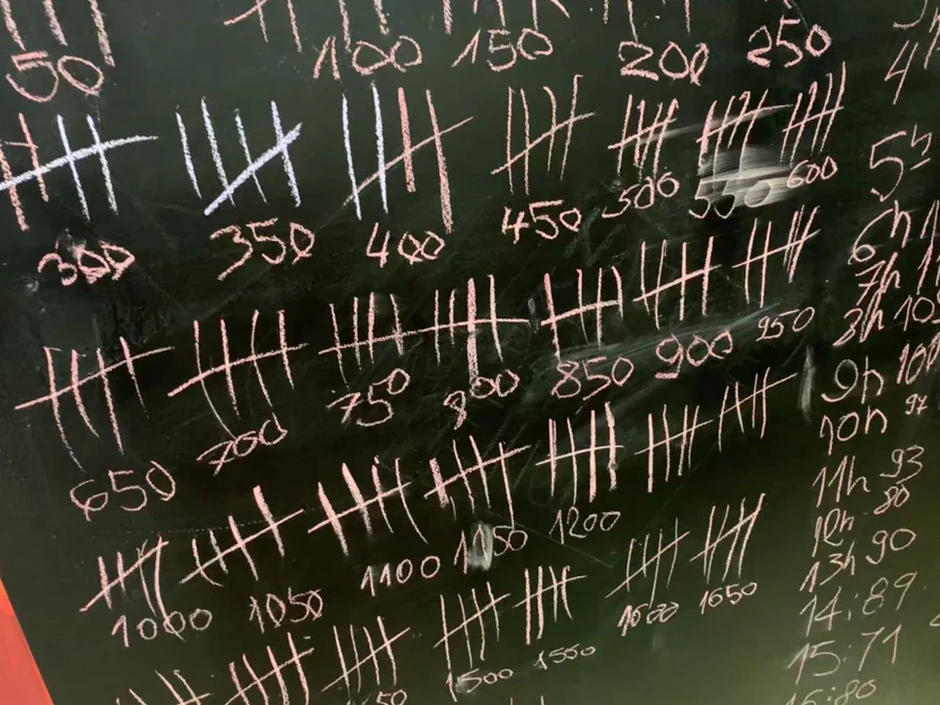 50 100 150 200 250
300 350 400 450 500 550 600
650 700 750 800 850 900 950
1000 1050 1100 1150 1200
1500 1550 1600 1650
5h
6h
7h
9h 100
10h 97
11h 93
12h 80
13h 90
14:89
15:71
16:80